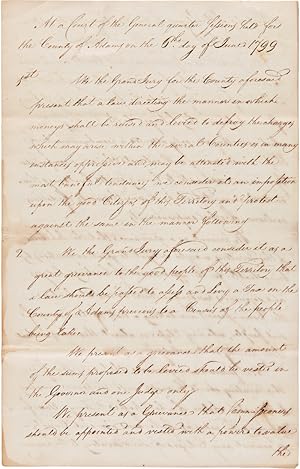 At a Court of the General quarter Sessions held for
the County of Adams on the 6th day of June 1799
1st
We the Grand Jury for the County aforesaid
present that a law directing the manner in which
moneys shall be raised and levied to defray the charges
which may arise within the several Counties as in many
instances oppressive and may be attended with the
most baneful tendency we consider it as an imposition
upon the good Citizens of this Territory and Protest
against the same in the manner following
2
We the Grand Jury aforesaid consider it as a
great grievance to the good people of this Territory that
a law should be passed to assess and levy a Tax on the
County of Adams previous to a Census of the people
being taken
We present as a grievance that the amount
of the sums proposed to be levied should be vested in
the Governor and one Judge only
We present as a Grievance that Commissioners
should be appointed and vested with a power to value
the